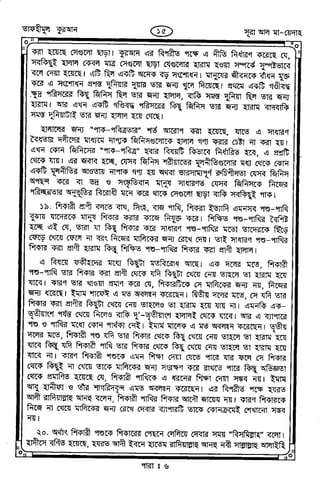 তাফহীমুল কুরআন
১৫
সূরা আল মা-য়েদাহ
করা হয়েছে সেগুলো ছাড়া। কুরআন এর বিপরীত পক্ষে এ নীতি নির্ধারণ করেছে যে,
সবকিছুই হালাল কেবল মাত্র সেগুলো ছাড়া যেগুলোর হারাম হওয়া সম্পর্কে সুস্পষ্টভাবে
বলে দেয়া হয়েছে। এটি ছিল একটি অনেক বড় সংশোধন। মানুষের জীবনকে বাঁধন মুক্ত
করে এ সংশোধন প্রশস্ত দুনিয়ার দুয়ার তার জন্য খুলে দিয়েছে। প্রথমে একটি গণ্ডীবদ্ধ
ক্ষুদ্র পরিসরের কিছু জিনিস ছিল তার জন্য হালাল, বাকি সমস্ত দুনিয়া ছিল তার জন্য
হারাম। আর এখন একটি গণ্ডীবদ্ধ পরিসরের কিছু জিনিস তার জন্য হারাম বাদবাকি
সমস্ত দুনিয়াটাই তার জন্য হালাল হয়ে গেছে।
হালালের জন্য "পাক-পবিত্রতার" শর্ত আরোপ করা হয়েছে, যাতে এ সাধারণ
বৈধতার দলীলের মাধ্যমে নাপাক জিনিসগুলোকে হালাল গণ্য করার চেষ্টা না করা হয়।
এখন কোন জিনিসের "পাক-পবিত্র" হবার বিষয়টি কিভাবে নির্ধারিত হবে, এ প্রশ্নটি
থেকে যায়। এর জবাব হচ্ছে, যেসব জিনিস শরীয়াতের মূলনীতিগুলোর মধ্য থেকে কোন
একটি মূলনীতির আওতায় নাপাক গণ্য হয় অথবা ভারসাম্যপূর্ণ রুচিশীলতা যেসব জিনিস
অপছন্দ করে বা ভদ্র ও সংস্কৃতিবান মানুষ সাধারণত যেসব জিনিসকে নিজের
পরিচ্ছন্নতার অনুভূতির বিরোধী মনে করে থাকে সেগুলো ছাড়া বাকি সবকিছুই পাক।
১৯. শিকারী প্রাণী বলতে বাঘ, সিংহ, বাজ পাখি, শিকরা ইত্যাদি এমনসব পশু-পাখি
বুঝায় যাদেরকে মানুষ শিকার করার কাজে নিযুক্ত করে। শিক্ষিত পশু-পাখির বৈশিষ্ট
হচ্ছে এই যে, তারা যা কিছু শিকার করে সাধারণ পশু-পাখির মতো তাদেরকে ছিঁড়ে
ফেড়ে খেয়ে ফেলে না বরং নিজের মালিকের জন্য রেখে দেয়। তাই সাধারণ পশু-পাখির
শিকার করা প্রাণী হারাম কিন্তু শিক্ষিত পশু-পাখির শিকার করা প্রাণী হালাল।
এ বিষয়ে ফকীহদের মধ্যে কিছুটা মতবিরোধ আছে। এক দলের মতে, শিকারী
পশু-পাখি তার শিকার করা প্রাণী থেকে যদি কিছুটা খেয়ে নেয় তাহলে তা হারাম হয়ে
যাবে। কারণ তার খাওয়া প্রমাণ করে যে, শিকারটিকে সে মালিকের জন্য নয়, নিজের
জন্য ধরেছে। ইমাম শাফেঈ এ মত অবলম্বন করেছেন। দ্বিতীয় দলের মতে, সে যদি তার
শিকার করা প্রাণীর কিছুটা খেয়ে নেয় তাহলেও তা হারাম হয়ে যায় না। এমনকি এক-
তৃতীয়াংশ পর্যন্ত খেয়ে নিলেও বাকি দু'-তৃতীয়াংশ হালালই থেকে যাবে। আর এ ব্যাপারে
পশু ও পাখির মধ্যে কোন পার্থক্য নেই। ইমাম মালেক এ মত অবলম্বন করেছেন। তৃতীয়
দলের মতে, শিকারী পশু যদি তার শিকার থেকে কিছু খেয়ে নেয় তাহলে তা হারাম হয়ে
যাবে কিন্তু যদি শিকারী পাখি তার শিকার থেকে কিছু খেয়ে নেয় তাহলে তা হারাম হয়ে
যাবে না। কারণ শিকারী পশুকে এমন শিক্ষা দেয়া যেতে পারে যার ফলে সে শিকার
থেকে কিছুই না খেয়ে তাকে মালিকের জন্য সংরক্ষণ করে রাখতে পারে কিন্তু অভিজ্ঞতা
থেকে প্রমাণিত হয়েছে যে, শিকারী পাখিকে এ ধরনের শিক্ষা দেয়া সম্ভব নয়। ইমাম
আবু হানীফা ও তাঁর শাগরিদবৃন্দ এমত অবলম্বন করেছেন। এর বিপরীত পক্ষে হযরত
আলী রাদিয়াল্লাহু আনহু বলেন, শিকারী পাখির শিকার আদৌ জায়েয নয়। কারণ শিকারকে
নিজে না খেয়ে মালিকের জন্য রেখে দেবার ব্যাপারটি তাকে কোনক্রমেই শেখানো সম্ভব
নয়।
২০. অর্থাৎ শিকারী পশুকে শিকারের পেছনে লেলিয়ে দেবার সময় "বিসমিল্লাহ" বলো।
হাদীসে বর্ণিত হয়েছে, হযরত আদী ইবনে হাতেম রাদিয়াল্লাহু আনহু নবী সাল্লাল্লাহু আলাইহি
পারা : ৬